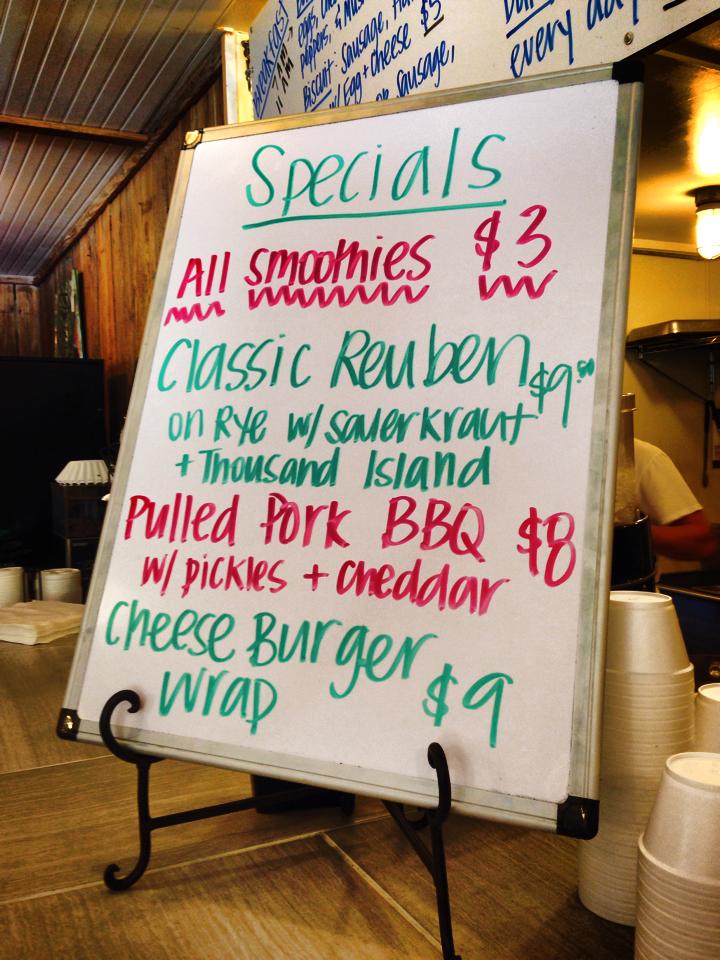 Breakfast
7 AM
11 AM
eggs,
peppers, &
Biscuit: Sausage,
w/ Egg + cheese $5
sausage,
every day
Specials
All smoothies $3
Classic Reuben $9.50
on Rye w/ sauerkraut
+ Thousand Island
Pulled Pork BBQ $8
w/ pickles + cheddar
Cheese Burger
wrap $9